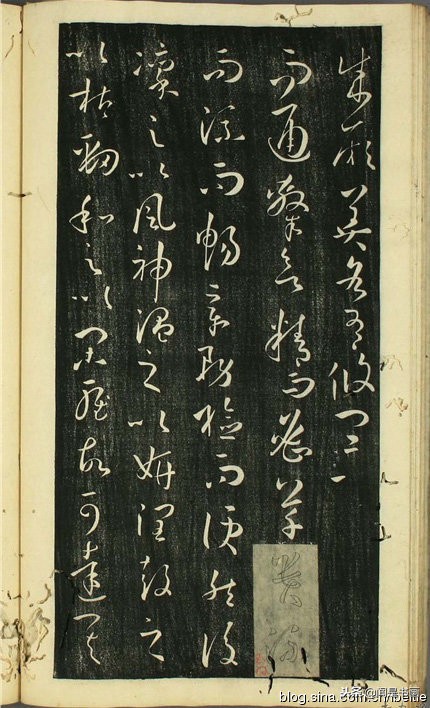 成厥美各有攸宜
而通隸欲精而密草
流而暢章務檢而便然後
凜之以風神溫之以妍潤鼓之
以枯勁和之以閑雅故可達其
blog.sina.com.cn/beitie